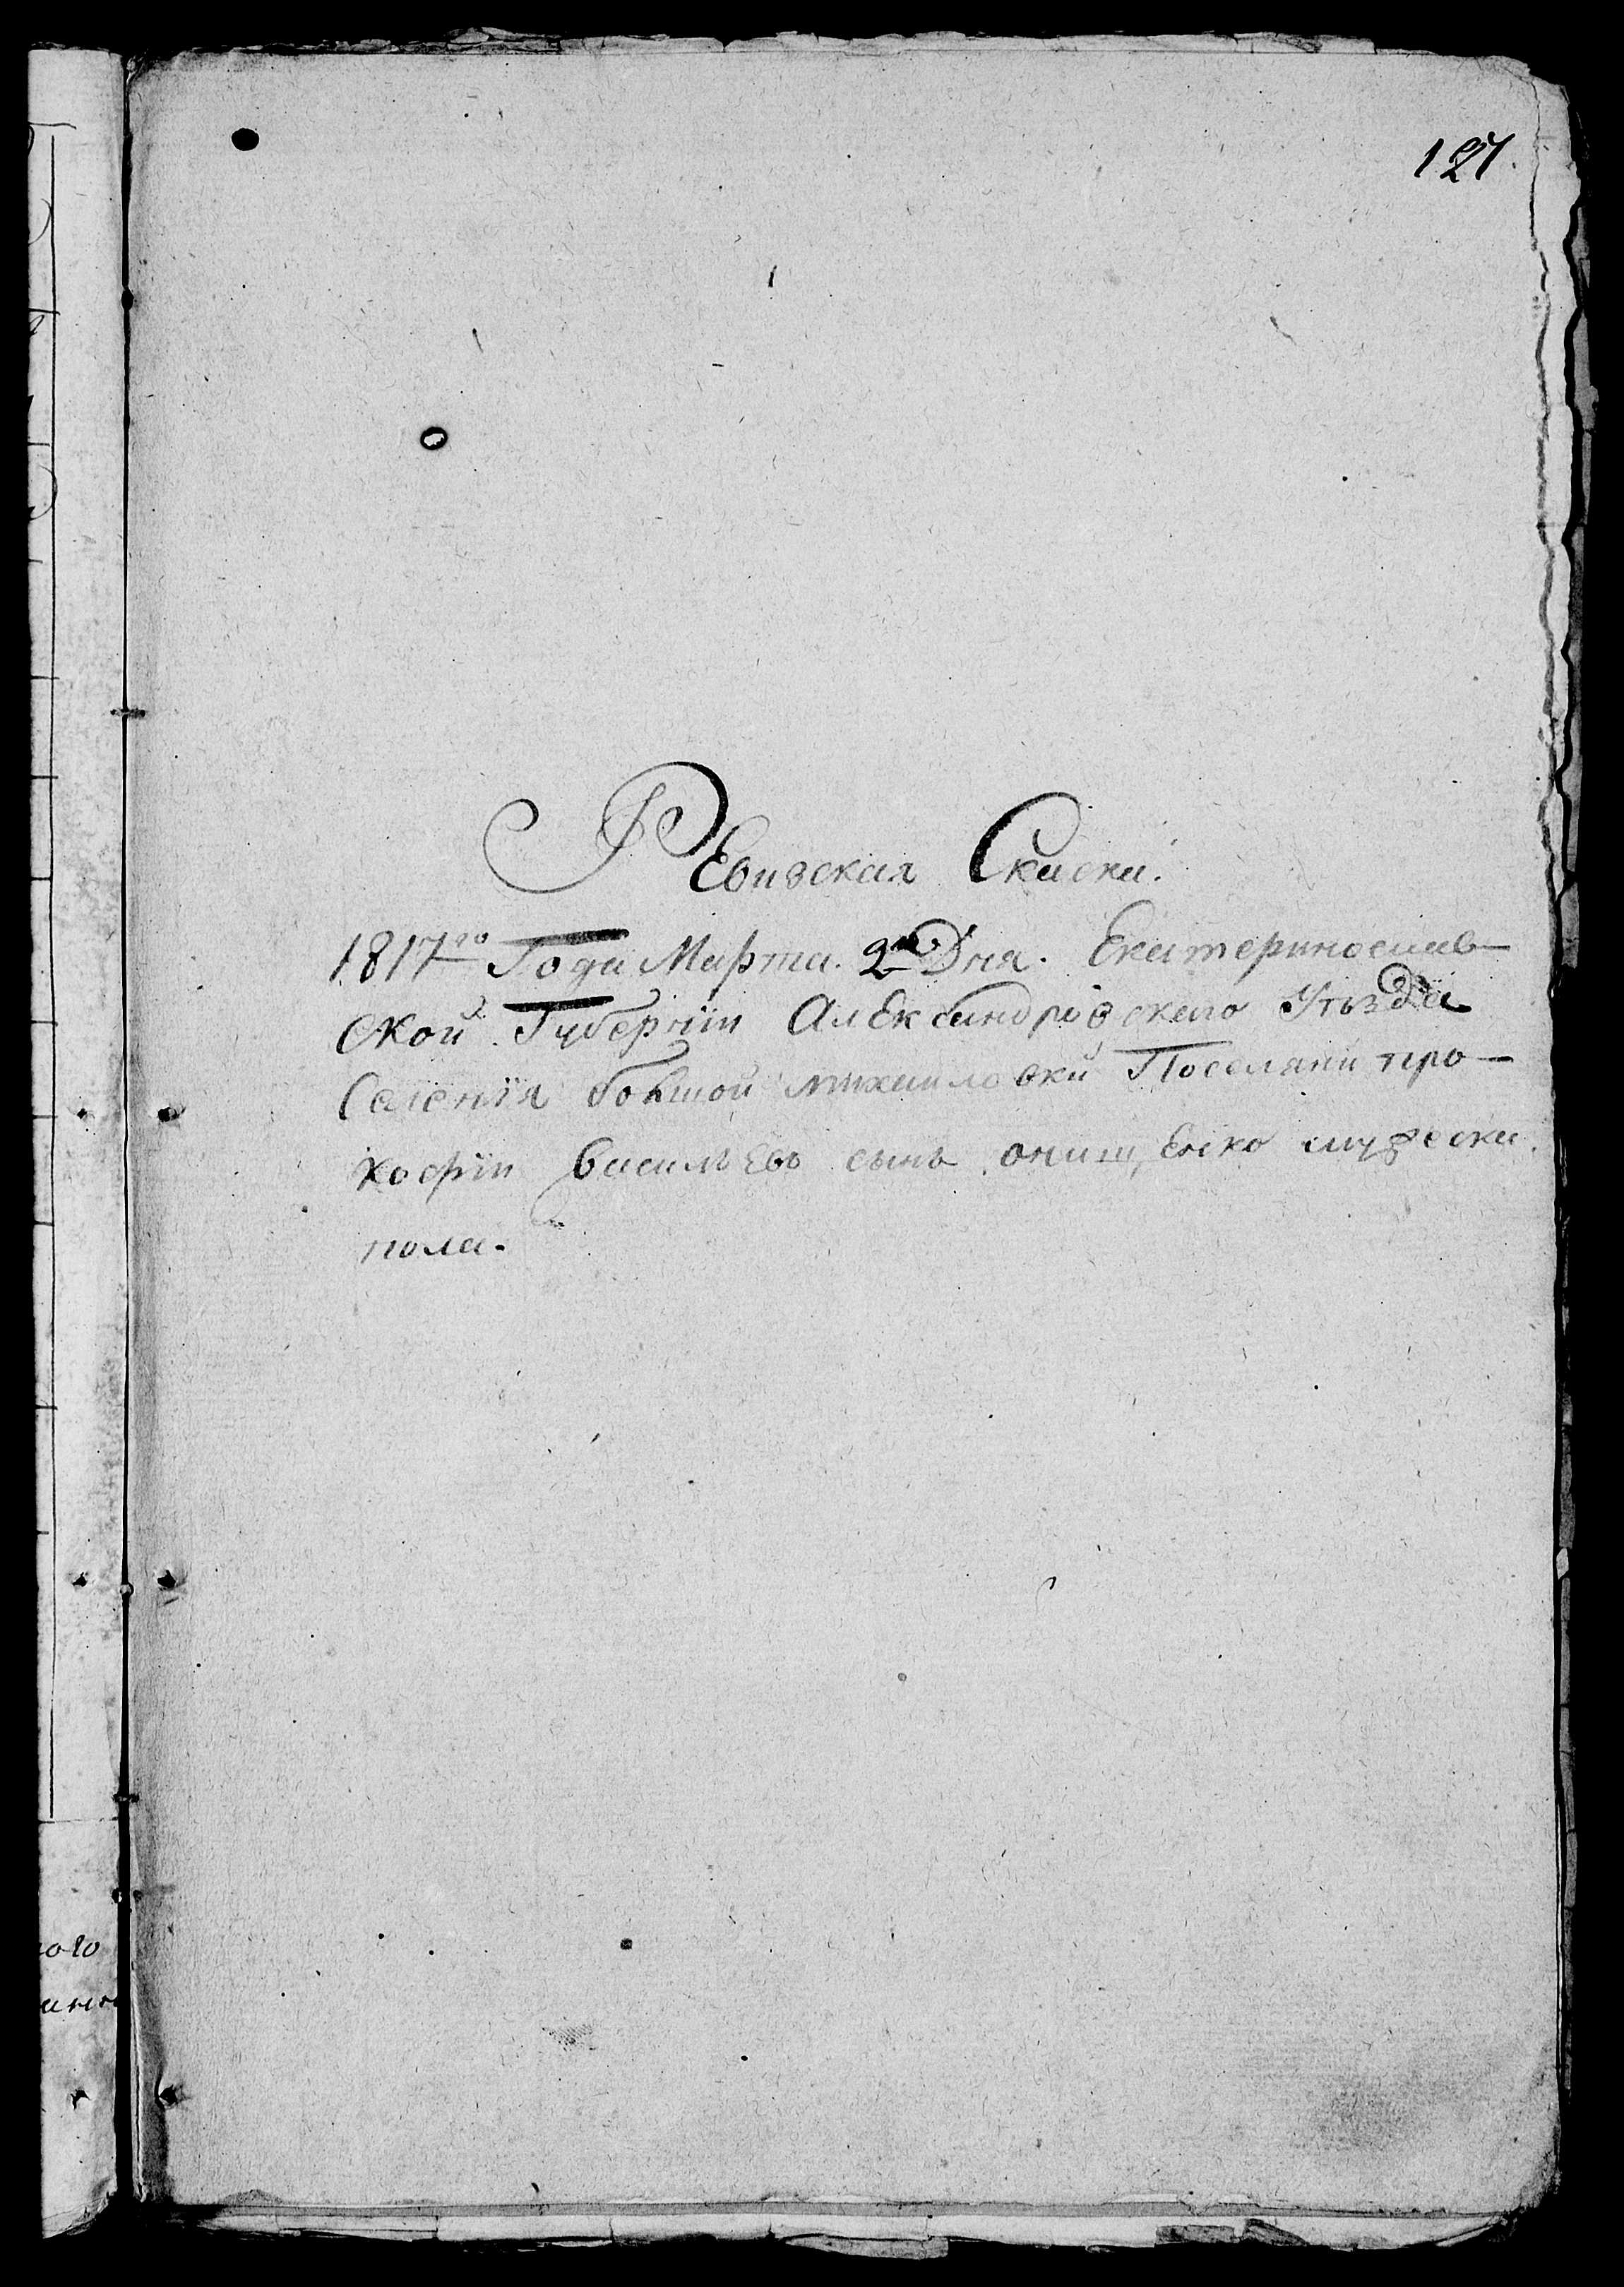 127.
Ревизская Скаска.
1817го Года Марта. 2го Дня. Екатеринослав—
ской Губернїи Александровскаго Уѣзда
Селенїя болшой михаиловки Поселянинъ про—
кофїи васильевъ сынъ онищенко мужеска
пола.